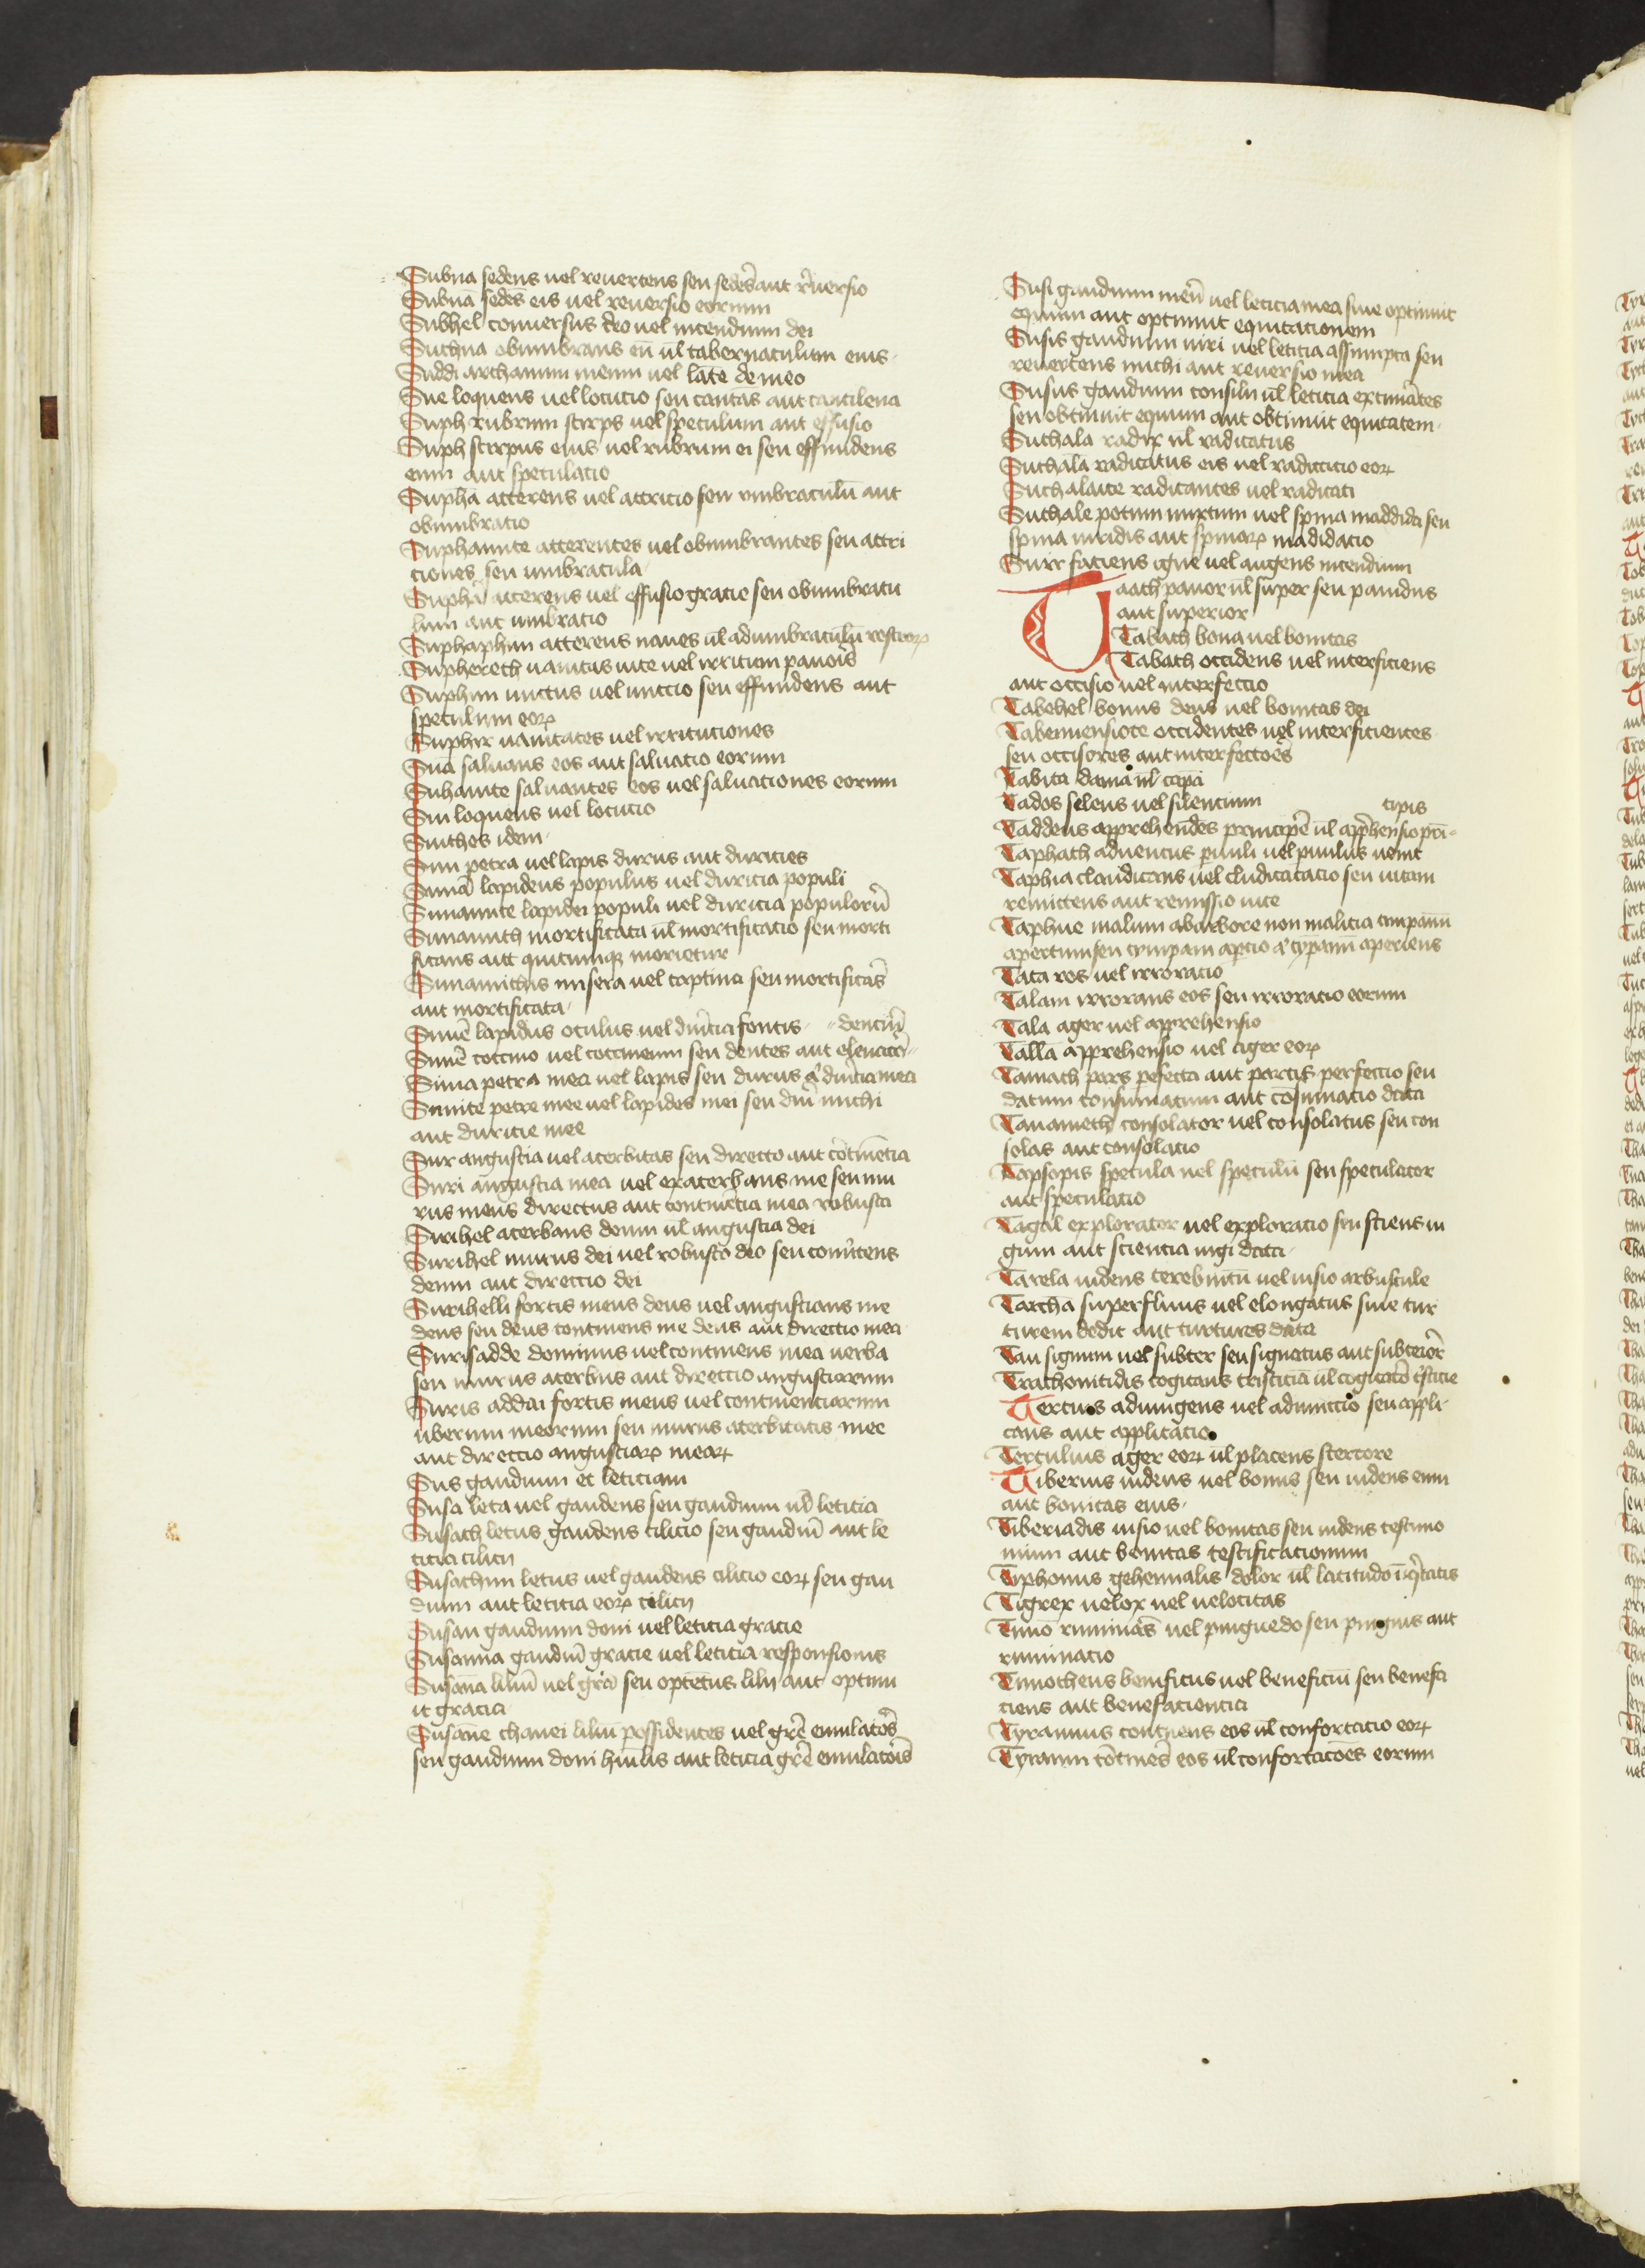 Subna sedens uel reuertens seu sedēs aut r̄uersio
Subnā sedēs eis uel reuersio eorum
Subhel conuersus deo uel incendium dei
Suchna obumbrans eū ul̄ tabernaculum eius
Suddi archanum meum uel late de meo
Sue loquens uel locucio seu cantās aut cantilena
Suph rubrum stirps uel speculum aut effusio
Suph stirpus eius uel rubrum ei seu effundens
eum aut speculatio
Supha atterens uel attricio seu umbraculū aut
obumbratio
Suphamite atterentes uel obumbrantes seu attri
ciones seu umbracula
Suphā atterens uel effusio gracie seu obumbracu
lum aut umbratio
Suphaphim atterens naues ul̄ adumbraculū
Suphereth uanitas uite uel irritum pauoīs
Suphim unctus uel unctio seu effundens aut
speculum eoꝝ
Suphir uanitates uel irritaciones
Suā saluans eos aut saluatio eorum
Suhamite saluantes eos uel saluationes eorum
Sui loquens uel locucio
Suithes idem
Sun petra uel lapis durus aut durities
Sunā lapideus populus uel duricia populi
Sunamite lapidei populi uel duricia populorū
Sunamith mortificata ul̄ mortificatio seu morti
ficans aut quicumqꝫ morietur
Sunamitis misera uel captiua seu mortificās
aut mortificata
Sunē lapidus oculus uel durīcia fontis dencīū
Sunē coccino uel coccineum seu dentes aut
Sunia petra mea uel lapis seu durus a̓ durīcia mea
Sunite petre mee uel lapides mei seu durī michi
aut duricie mee
Sur angustia uel acerbitas seu directo aut cōtinētia
Suri angustia mea uel exacerbans me seu mu
rus meus directus aut continētia mea robusta
Surihel acerbans deum ul̄ angustia dei
Surihel murus dei uel robusto deo seu contīnens
deum aut directio dei
Surihelli fortis meus deus uel angustians me
deus seu deus continens me deus aut directio mea
Surisadde dominus uel continens mea uerba
seu murus acerbus aut directio angustiarum
Suris addai fortis meus uel continenciarum
uberum meorum seu murus acerbitatis mee
aut directio angustiaꝝ meaꝝ
Sus gaudium et leticiam
Susa leta uel gaudens seu gaudium ul̄ leticia
Susach letus gaudens cilicio seu gaudiū aut le
ticia cilicii
Susachim letus uel gaudens cilicio eoꝝ seu gau
dium aut leticia eoꝝ cilicii
Susan gaudium doni uel leticia gracie
Susanna gaudiū gracie uel leticia responsionis
Susānā liliū uel grā seu optētus lilii aut optinu
it gracia
Susane chanei lilii possidentes uel grē emulatoīs
seu gaudium doni huīlis aut leticia grē emulatoīs
Susi gaudium meū uel leticia mea siue optinuit
equum aut optinuit equitationem
Susis gaudium uiri uel leticia assumpta seu
reuertens michi aut reuersio mea
Susus gaudium consilii ul̄ leticia
seu obtinuit equum aut obtinuit equitatem
Suthala radix ul̄ radicatus
Suthālā radicatus eis uel radicatio eoꝝ
Suthalaite radicantes uel radicati
Suthale potum mirtum uel spina maddida seu
spina uiridis aut spinaꝝ madidatio
Surr faciens igne uel augens incendium
Taath pauor ul̄ super seu pauidus
aut superior
Tabath bona uel bonitas
Tabath occidens uel interficiens
aut occisio uel interfectio
Tabehel bonus deus uel bonitas dei
Tabeniensiote occidentes uel interficientes
seu occisores aut interfectoēs
Tabita dama ul̄ capa
Tados silens uel silentium cipis
Taddeus apprehendēs principē ul̄ apprehensio pri
Taphath aduentus puuli uel puulus uenit
Taphia claudicans uel cluditatatio seu uitam
remittens aut remissio uite
Taphue malum ab arbore non malicia timpanū
apertum seu tympani aptio a̓ typani aperiens
Tata ros uel irroratio
Talam irrorans eos seu irroratio eorum
Tala ager uel apprehensio
Tallā apprehensio uel ager eoꝝ
Tamath pars perfecta aut partis perfectio seu
datum consumatum aut cōsumatio data
Tanameth consolator uel consolatus seu con
solas aut consolatio
Tapsopis specula uel speculū seu speculator
aut speculatio
Tagal explorator uel exploratio seu sciens iu
gum aut scientia iugi data
Tarela uidens terebintū uel uisio arbuscule
Tarchā superfluus uel elongatus siue tur
turem dedit aut turtures data
Tau signum uel subter seu signatus aut subteiōr
Trachonitidis cogitans tristiciā ul̄ cogitatō tristicie
Tertuus adiungens uel adiunctio seu appli
cans aut applicatio
Tertulius ager eoꝝ ul̄ placens stercore
Tiberius uidens uel bonus seu uidens eum
aut bonitas eius
Tiberiadis uisio uel bonitas seu uidens testimo
nium aut bonitas testificationum
Tiphonus gehennalis dolor ul̄ latitudo
Tigrex uelox uel uelocitas
Timo ruminās uel pinguedo seu pinguis aut
ruminatio
Timotheus beneficus uel beneficiū seu benefa
ciens aut benefacientia
Tyrannus continens eos ul̄ confortatio eoꝝ
Tyranni cōtinēs eos ul̄ confortatoēs eorum